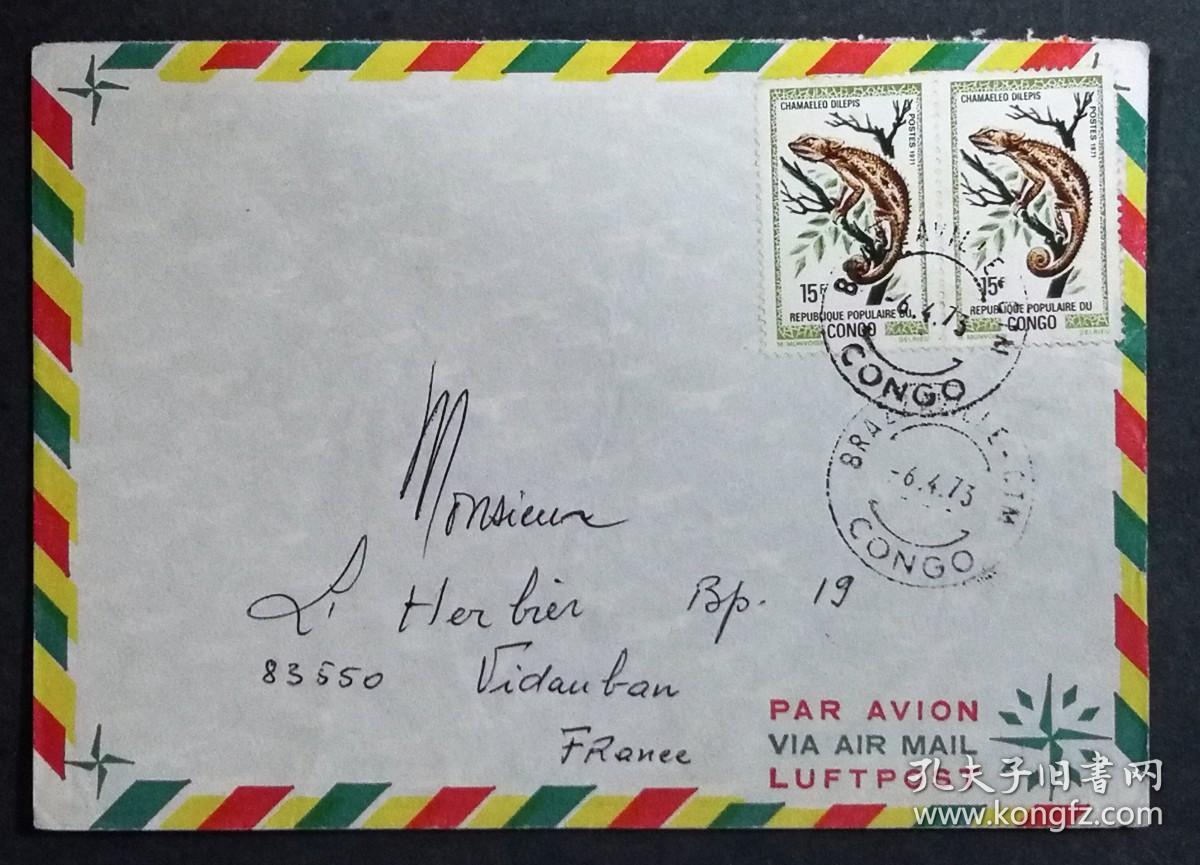 CHAMAELEO DILEPIS
POSTES 1971
15F
REPUBLIQUE POPULAIRE DU
CONGO
DELRIEU
CHAMAELEO DILEPIS
POSTES 1971
15F
REPUBLIQUE POPULAIRE DU
CONGO
DELRIEU
-6.4.73
CONGO
BRAZZAVILLE-CTM
-6.4.73
CONGO
Monsieur
L'Herbier Bp. 19
83550 Vidauban
France
PAR AVION
VIA AIR MAIL
LUFTPOST
孔夫子旧書网
www.kongfz.com